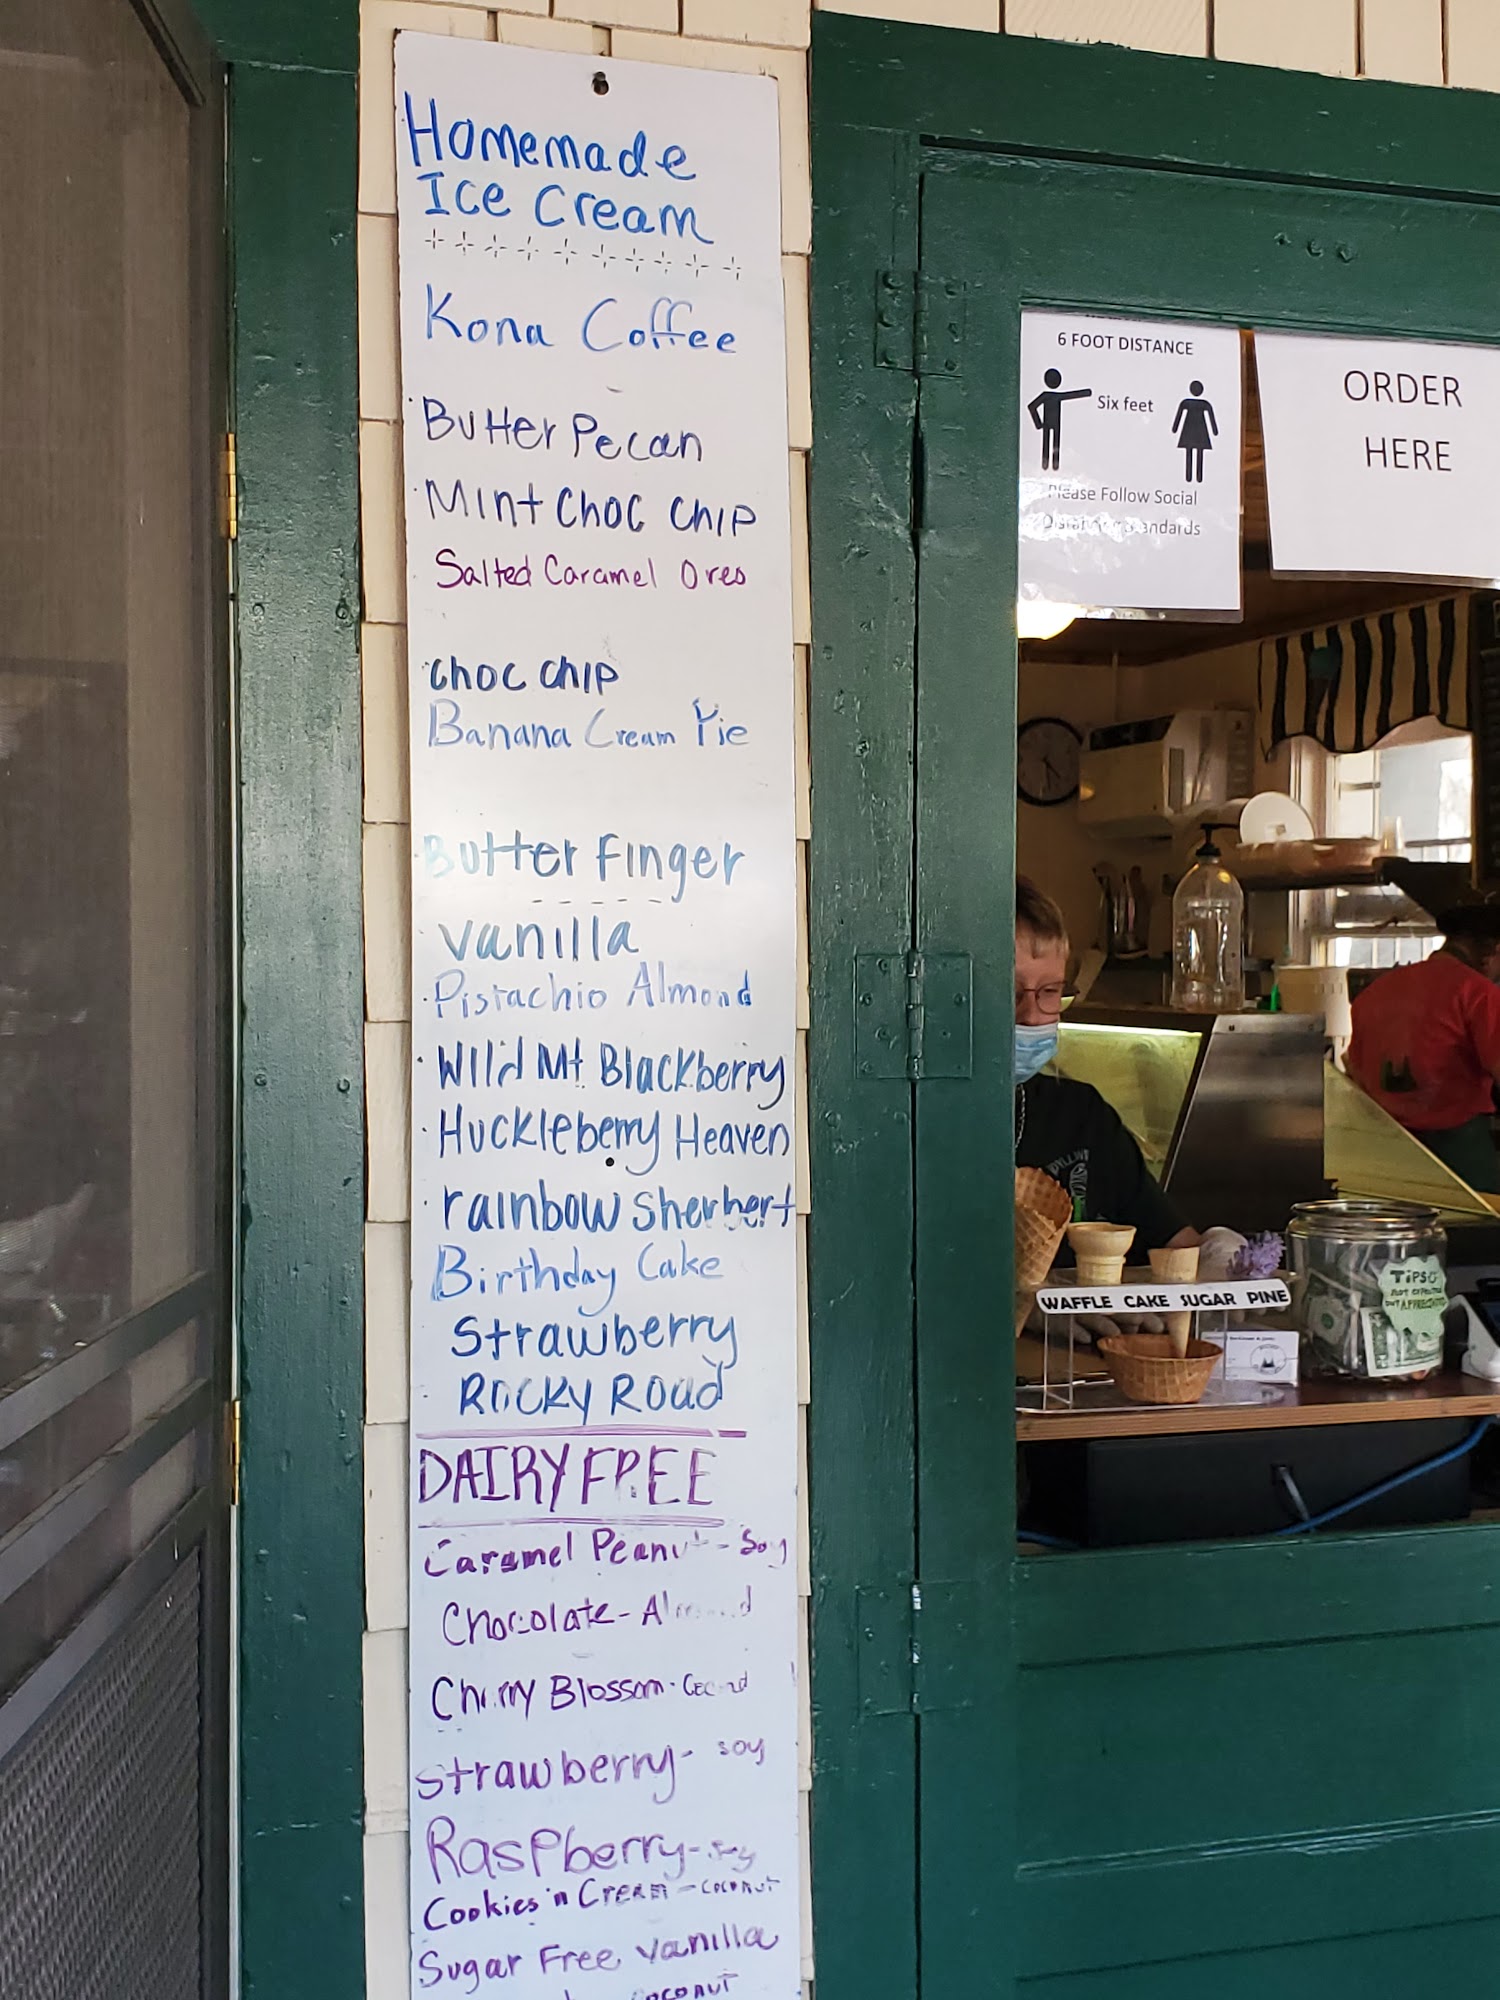 Homemade
Ice Cream
Kona Coffee
Butter Pecan
Mint Choc Chip
Salted Caramel Oreo
Choc Chip
Banana Cream Pie
Butter Finger
Vanilla
Pistachio Almond
Wild Mt Blackberry
Huckleberry Heaven
rainbow Sherbert
Birthday Cake
Strawberry
Rocky Road
DAIRY FREE
Caramel Peanut - Soy
Chocolate - Almond
Cherry Blossom -
Strawberry - Soy
Raspberry - Soy
Cookies 'n Cream - coconut
Sugar Free Vanilla
coconut
6 FOOT DISTANCE
Six feet
Please Follow Social
Distancing Standards
ORDER
HERE
WAFFLE CAKE SUGAR PINE
TIPS
NOT EXPECTED
BUT APPRECIATED